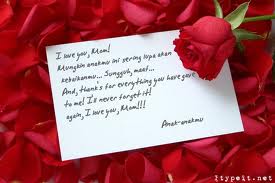 I love you, Mom!
Mungkin anakmu ini sering lupa akan
kebaikanmu... Sungguh, maaf...
And, thanks for everything you have gave
to me! I'll never forget it!
again, I love you, Mom!!!
Anak-anakmu
ltypeit.net